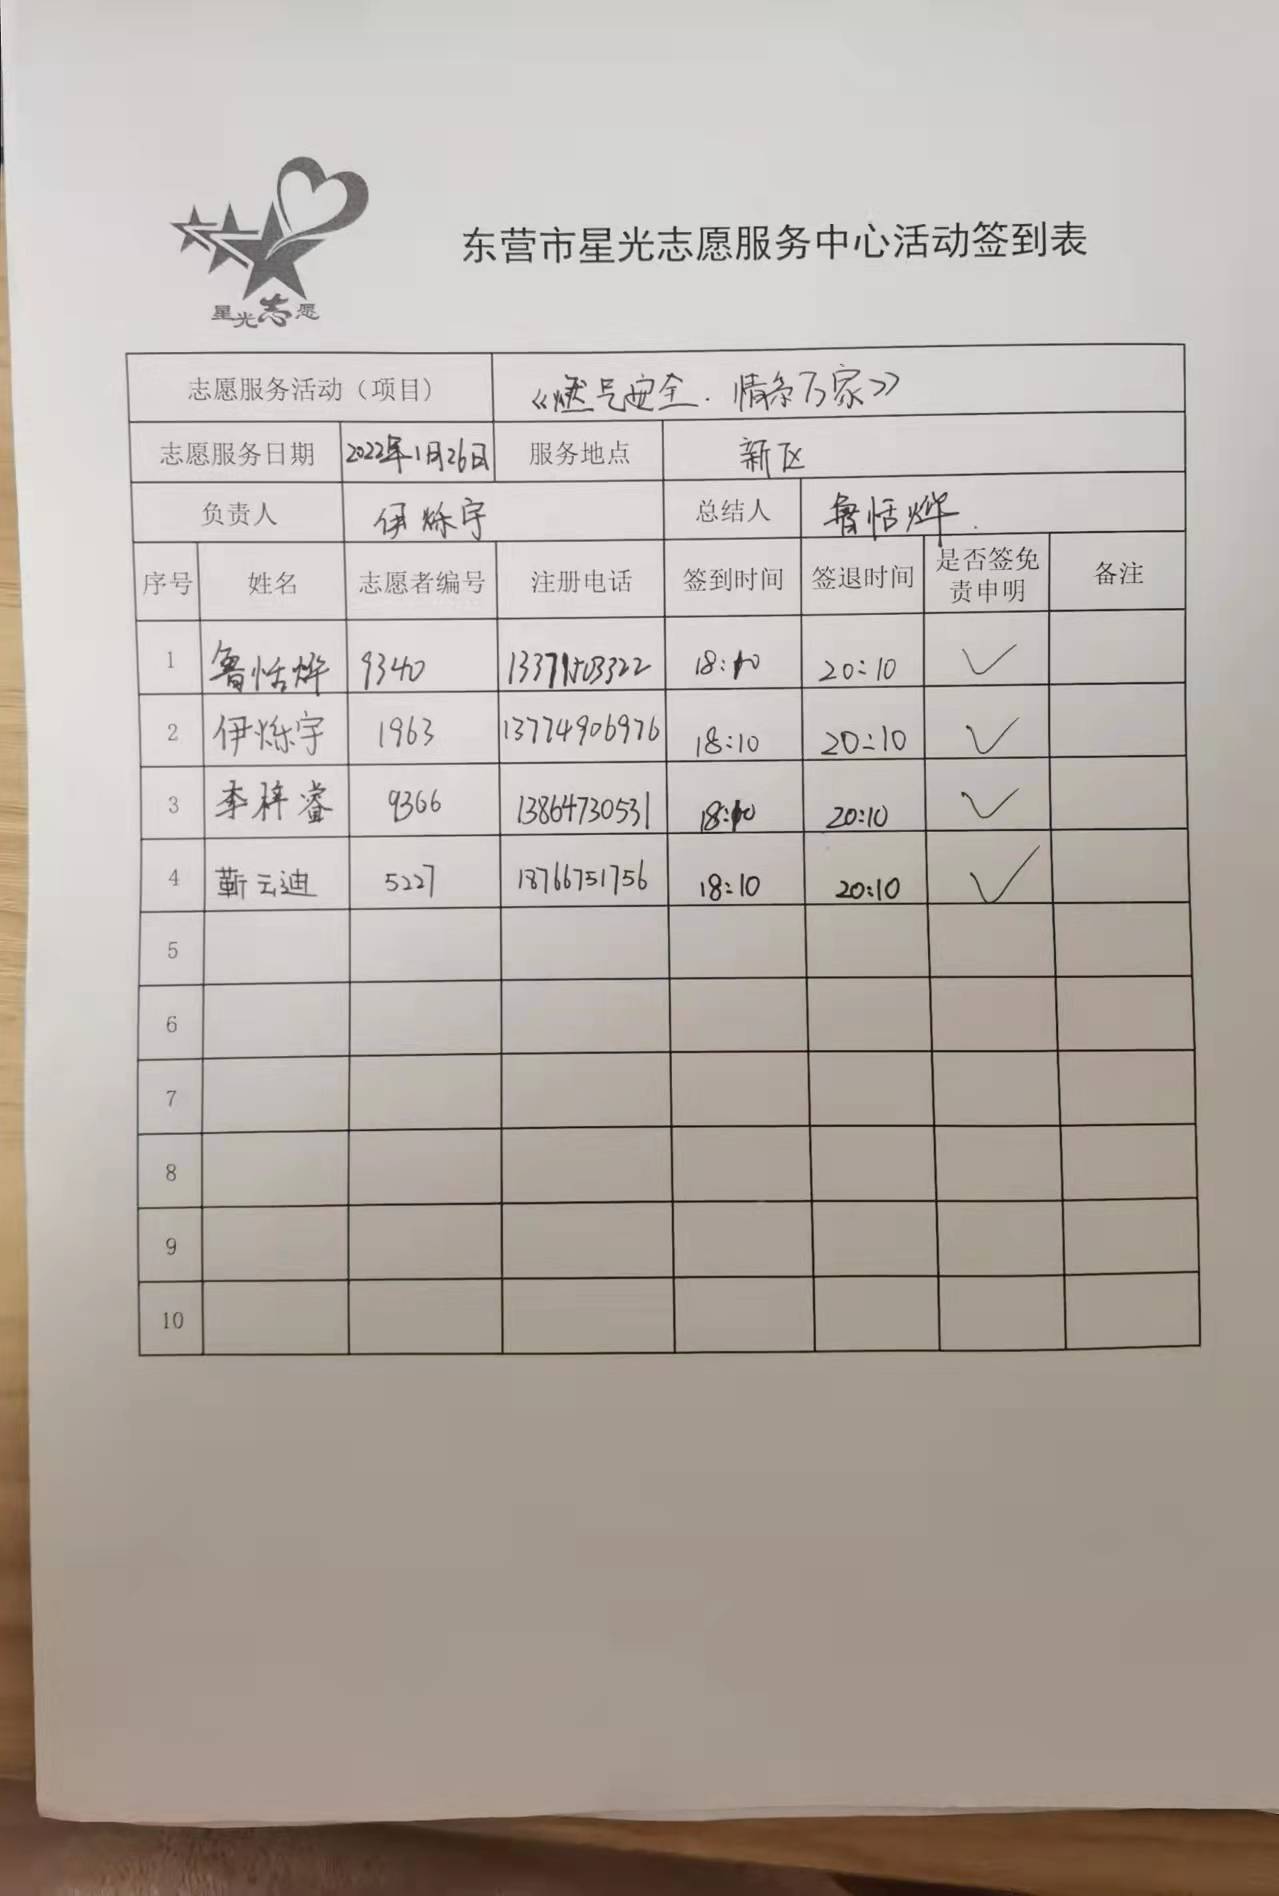 星光志愿
东营市星光志愿服务中心活动签到表
志愿服务活动（项目） 《燃气安全.情系万家》
志愿服务日期 2022年1月26日 服务地点 新区
负责人 伊烁宇 总结人 鲁恬烨.
序号 姓名 志愿者编号 注册电话 签到时间 签退时间 是否签免责申明 备注
1 鲁恬烨 9340 18:10 20:10 ✓
2 伊烁宇 1963 13774906976 18:10 20:10 ✓
3 李梓睿 9366 13864730531 18:10 20:10 ✓
4 靳云迪 5227 18766751756 18:10 20:10 ✓
5
6
7
8
9
10